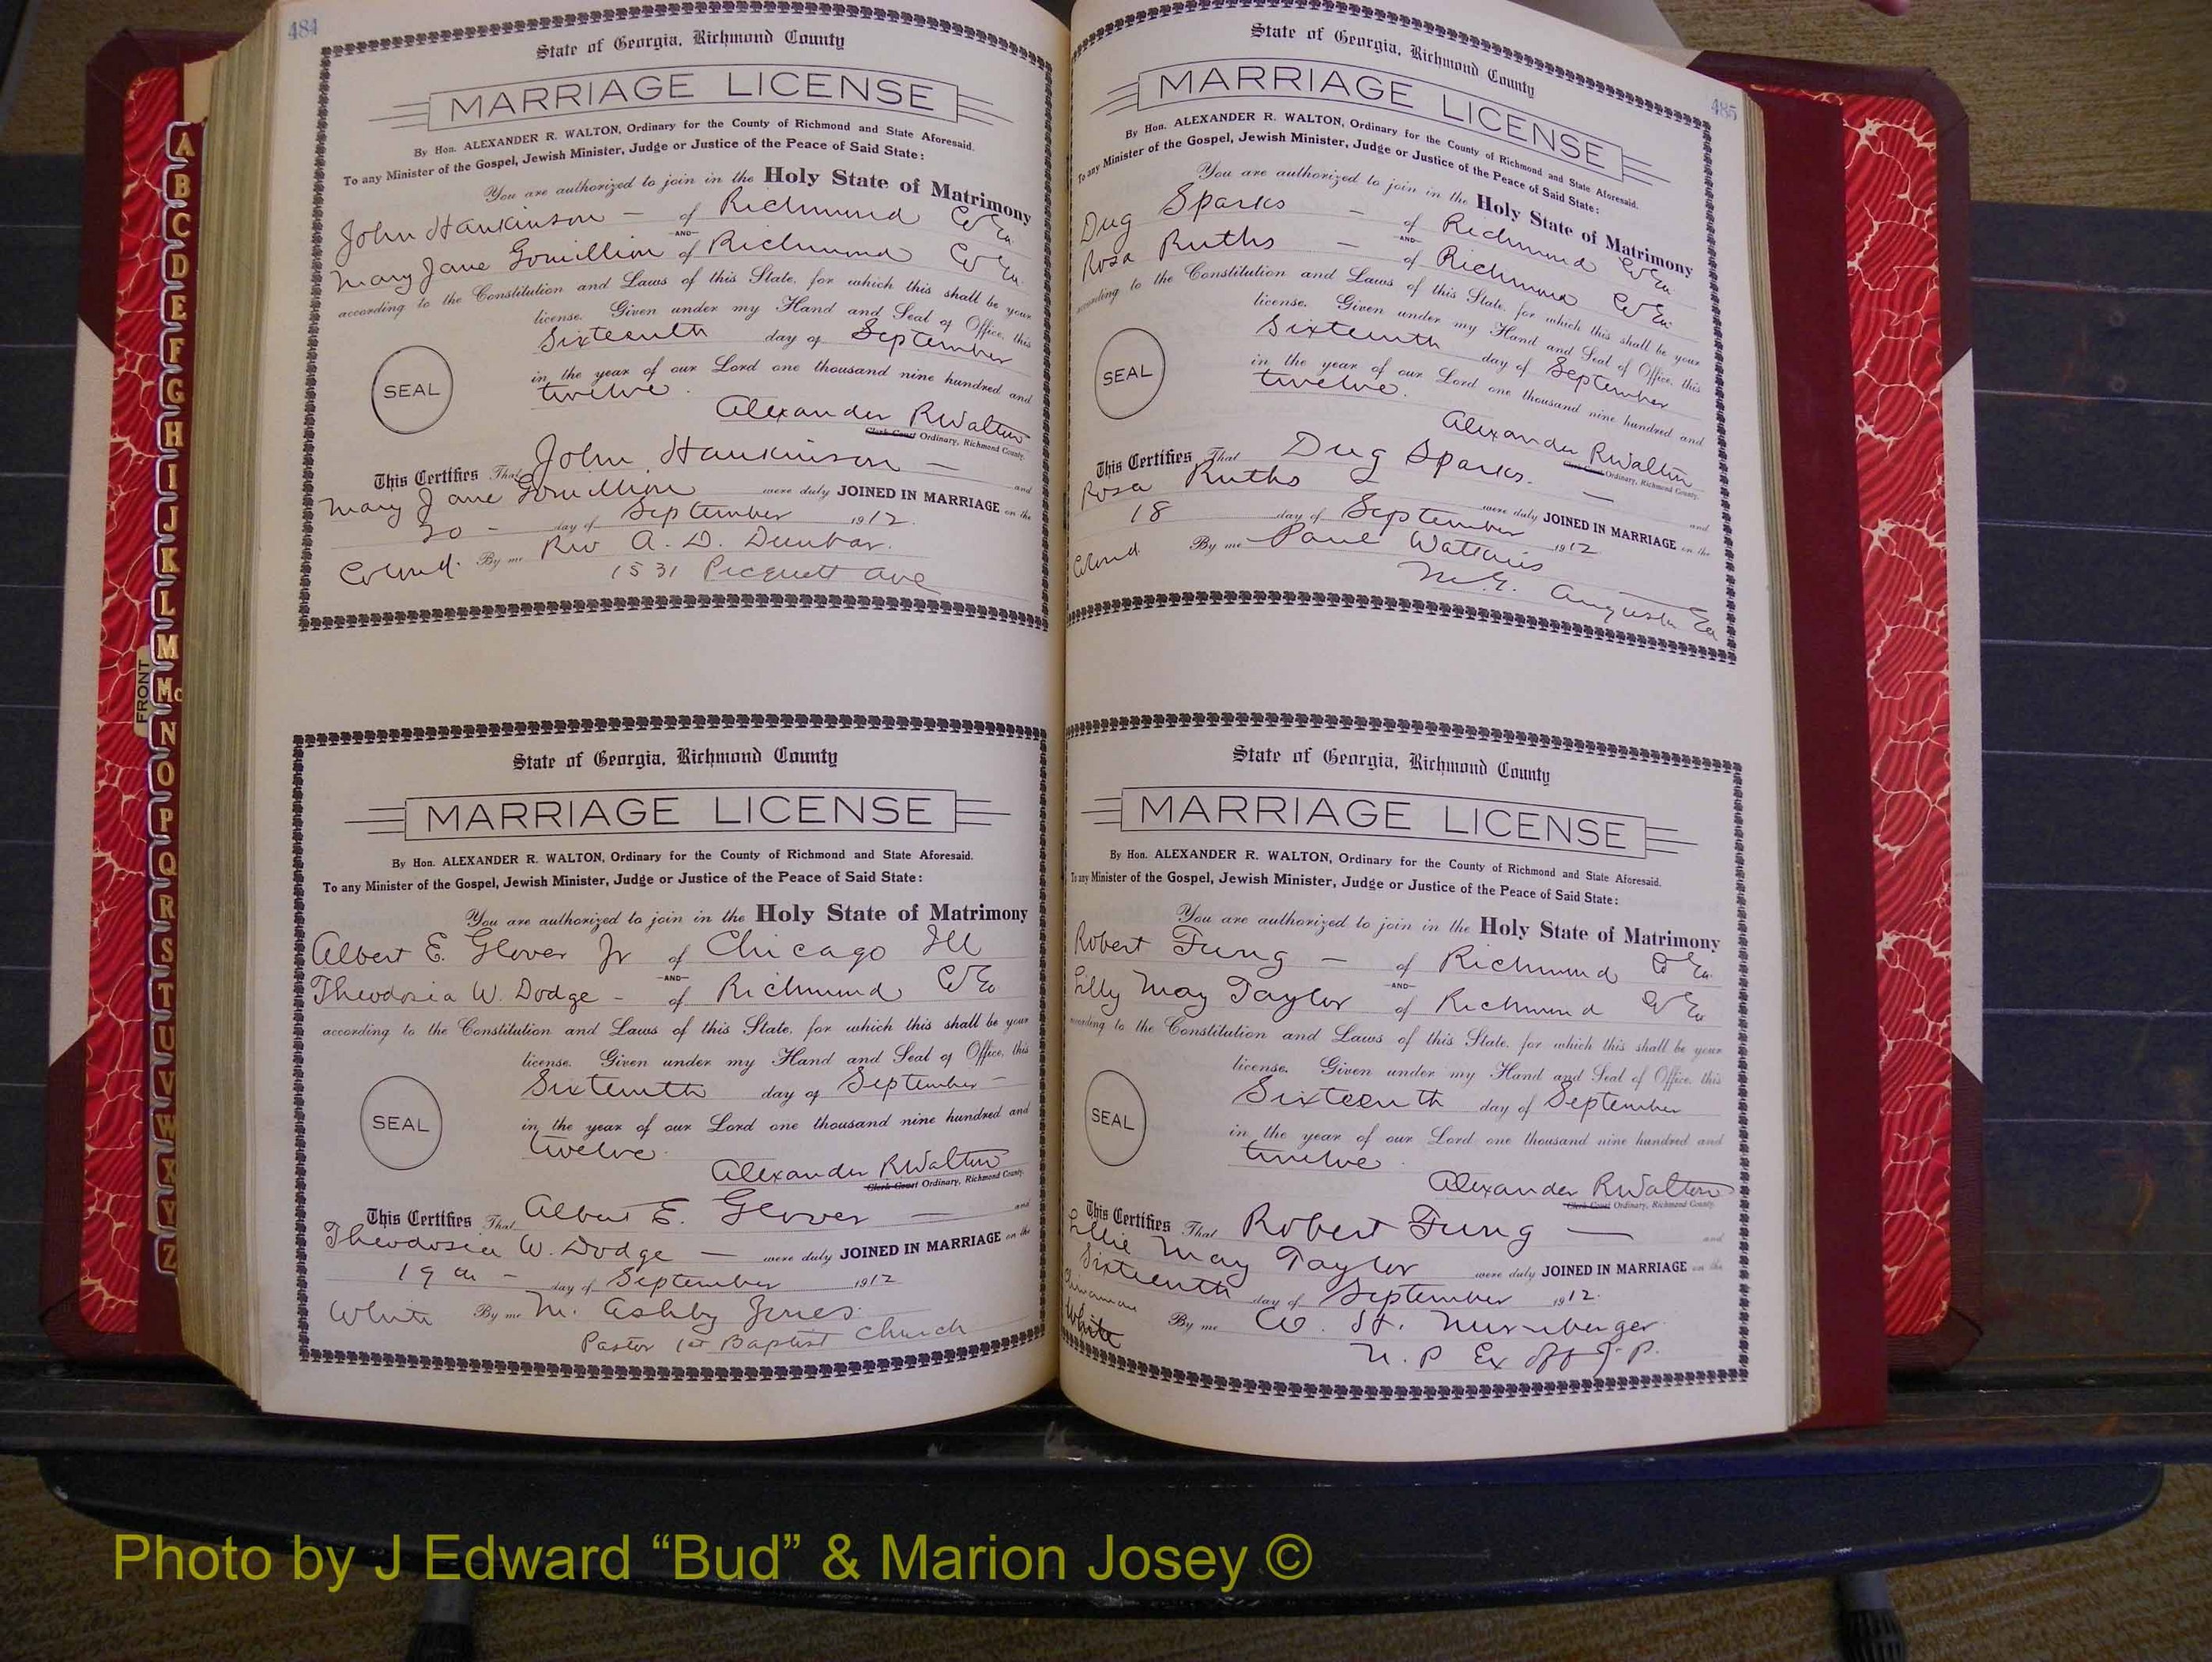 484
State of Georgia, Richmond County
MARRIAGE LICENSE
By Hon. ALEXANDER R. WALTON, Ordinary for the County of Richmond and State Aforesaid.
To any Minister of the Gospel, Jewish Minister, Judge or Justice of the Peace of Said State:
You are authorized to join in the Holy State of Matrimony
John Hankinson - of Richmond Co Ga
-AND-
Mary Jane Gomillion of Richmond Co Ga.
according to the Constitution and Laws of this State, for which this shall be your
license. Given under my Hand and Seal of Office, this
Sixteenth day of September
SEAL
in the year of our Lord one thousand nine hundred and
twelve.
Alexander R Walton
Clerk Court Ordinary, Richmond County.
This Certifies That John Hankinson - and
Mary Jane Gomillion were duly JOINED IN MARRIAGE on the
30 - day of September 1912.
Colored. By me Rev A. D. Dunbar.
1531 Picquett ave
State of Georgia, Richmond County
MARRIAGE LICENSE
By Hon. ALEXANDER R. WALTON, Ordinary for the County of Richmond and State Aforesaid.
To any Minister of the Gospel, Jewish Minister, Judge or Justice of the Peace of Said State:
You are authorized to join in the Holy State of Matrimony
Albert E. Glover Jr of Chicago Ill
-AND-
Theodosia W. Dodge - of Richmond Co Ga
according to the Constitution and Laws of this State, for which this shall be your
license. Given under my Hand and Seal of Office, this
Sixteenth day of September -
SEAL
in the year of our Lord one thousand nine hundred and
twelve.
Alexander R Walton
Clerk Court Ordinary, Richmond County.
This Certifies That Albert E. Glover - and
Theodosia W. Dodge - were duly JOINED IN MARRIAGE on the
19 th - day of September 1912
White By me M. Ashby Jones.
Pastor 1st Baptist Church
485
State of Georgia, Richmond County
MARRIAGE LICENSE
By Hon. ALEXANDER R. WALTON, Ordinary for the County of Richmond and State Aforesaid.
To any Minister of the Gospel, Jewish Minister, Judge or Justice of the Peace of Said State:
You are authorized to join in the Holy State of Matrimony
Dug Sparks - of Richmond Co Ga
-AND-
Rosa Ruths - of Richmond Co Ga
according to the Constitution and Laws of this State, for which this shall be your
license. Given under my Hand and Seal of Office, this
Sixteenth day of September
SEAL
in the year of our Lord one thousand nine hundred and
twelve.
Alexander R Walton
Clerk Court Ordinary, Richmond County.
This Certifies That Dug Sparks. - and
Rosa Ruths were duly JOINED IN MARRIAGE on the
18 day of September 1912
Colored. By me Paul Watkins
M.G. Augusta Ga
State of Georgia, Richmond County
MARRIAGE LICENSE
By Hon. ALEXANDER R. WALTON, Ordinary for the County of Richmond and State Aforesaid.
To any Minister of the Gospel, Jewish Minister, Judge or Justice of the Peace of Said State:
You are authorized to join in the Holy State of Matrimony
Robert Fung - of Richmond Co Ga.
-AND-
Lilly May Taylor of Richmond Co Ga
according to the Constitution and Laws of this State, for which this shall be your
license. Given under my Hand and Seal of Office, this
Sixteenth day of September
SEAL
in the year of our Lord one thousand nine hundred and
twelve.
Alexander R Walton
Clerk Court Ordinary, Richmond County.
This Certifies That Robert Fung - and
Lillie May Taylor were duly JOINED IN MARRIAGE on the
Sixteenth day of September 1912.
Chinaman
White By me W. H. Nurnberger
N. P Ex off J. P.
A
B
C
D
E
F
G
H
I
J
K
L
M
Mc
N
O
P
Q
R
S
T
U
V
W
X
Y
Z
FRONT
Photo by J Edward “Bud” & Marion Josey ©